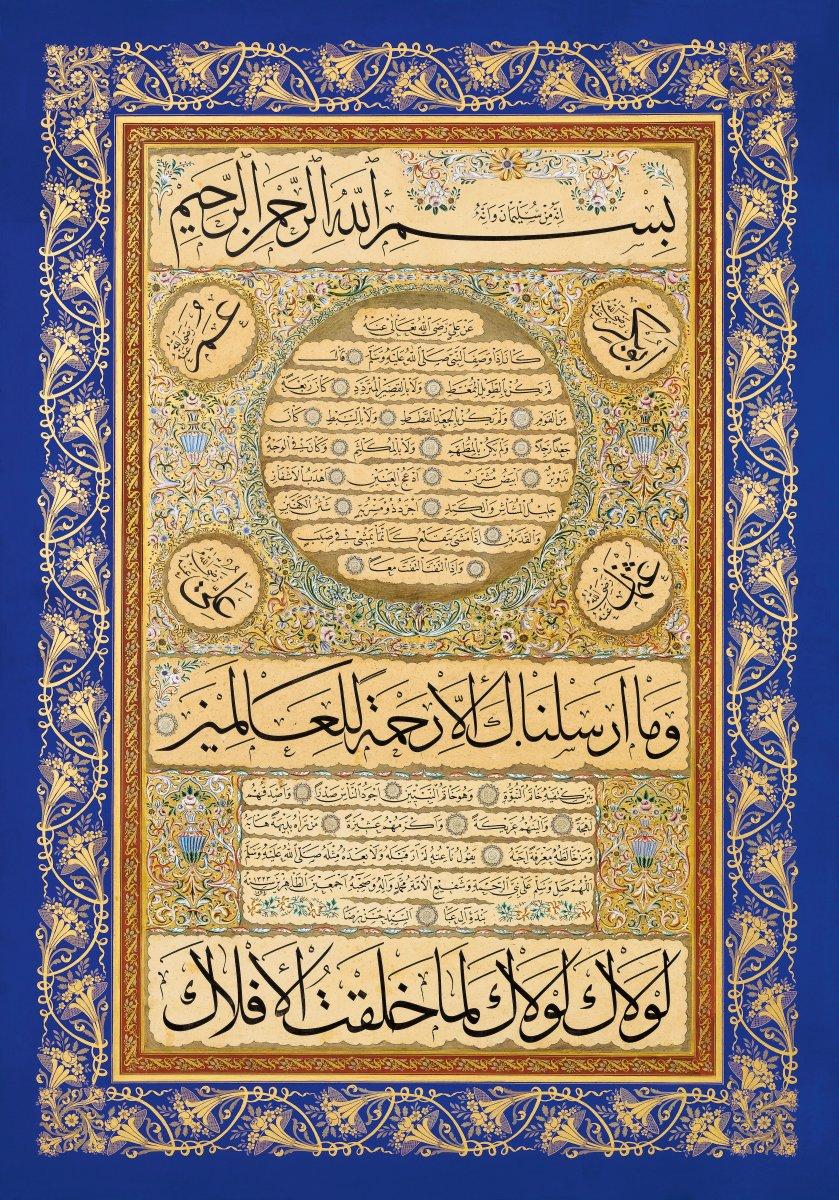 بسم الله الرحمن الرحيم
انه من سليمان وانه
ابو بكر رضي الله عنه
عمر رضي الله عنه
عن علي رضي الله تعالى عنه
كان اذا وصف النبي صلى الله عليه وسلم قال
لم يكن بالطويل الممغط ولا بالقصير المتردد كان ربعة
من القوم ولم يكن بالجعد القطط ولا بالسبط كان
جعدا رجلا ولم يكن بالمطهم ولا بالمكلثم وكان في الوجه
تدوير ابيض مشرب ادعج العينين اهدب الاشفار
جليل المشاش والكتد اجرد ذو مسربة شثن الكفين
والقدمين اذا مشى يتقلع كانما يمشي في صبب
واذا التفت التفت معا
عثمان رضي الله عنه
علي رضي الله عنه
وما ارسلناك الا رحمة للعالمين
بين كتفيه خاتم النبوة وهو خاتم النبيين اجود الناس صدرا واصدقهم
لهجة والينهم عريكة واكرمهم عشيرة من رآه بديهة هابه
ومن خالطه معرفة احبه يقول ناعته لم ار قبله ولا بعده مثله صلى الله عليه وسلم
اللهم صل وسلم على نبي الرحمة وشفيع الامة محمد وآله وصحبه اجمعين الطاهرين
بنده آل عبا السيد حسن رضا
لولاك لولاك لما خلقت الافلاك